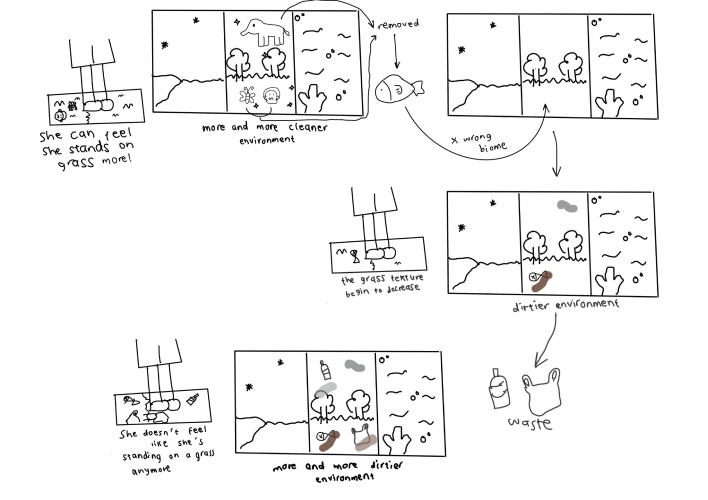 removed
She can feel
She stands on
grass more!
more and more cleaner
environment
x wrong
biome
the grass texture
begin to decrease
dirtier environment
waste
She doesn't feel
like she's
standing on a grass
anymore
more and more dirtier
environment